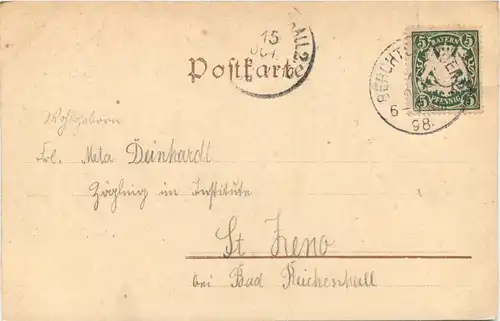 15
OCT
HALL 2.
5 BAYERN 5
5 PFENNIG 5
BERCHT
6
98.
Postkarte
Wohlgeboren
Frl. Meta Deinhardt
Zögling im Institute
St Zeno
bei Bad Reichenhall